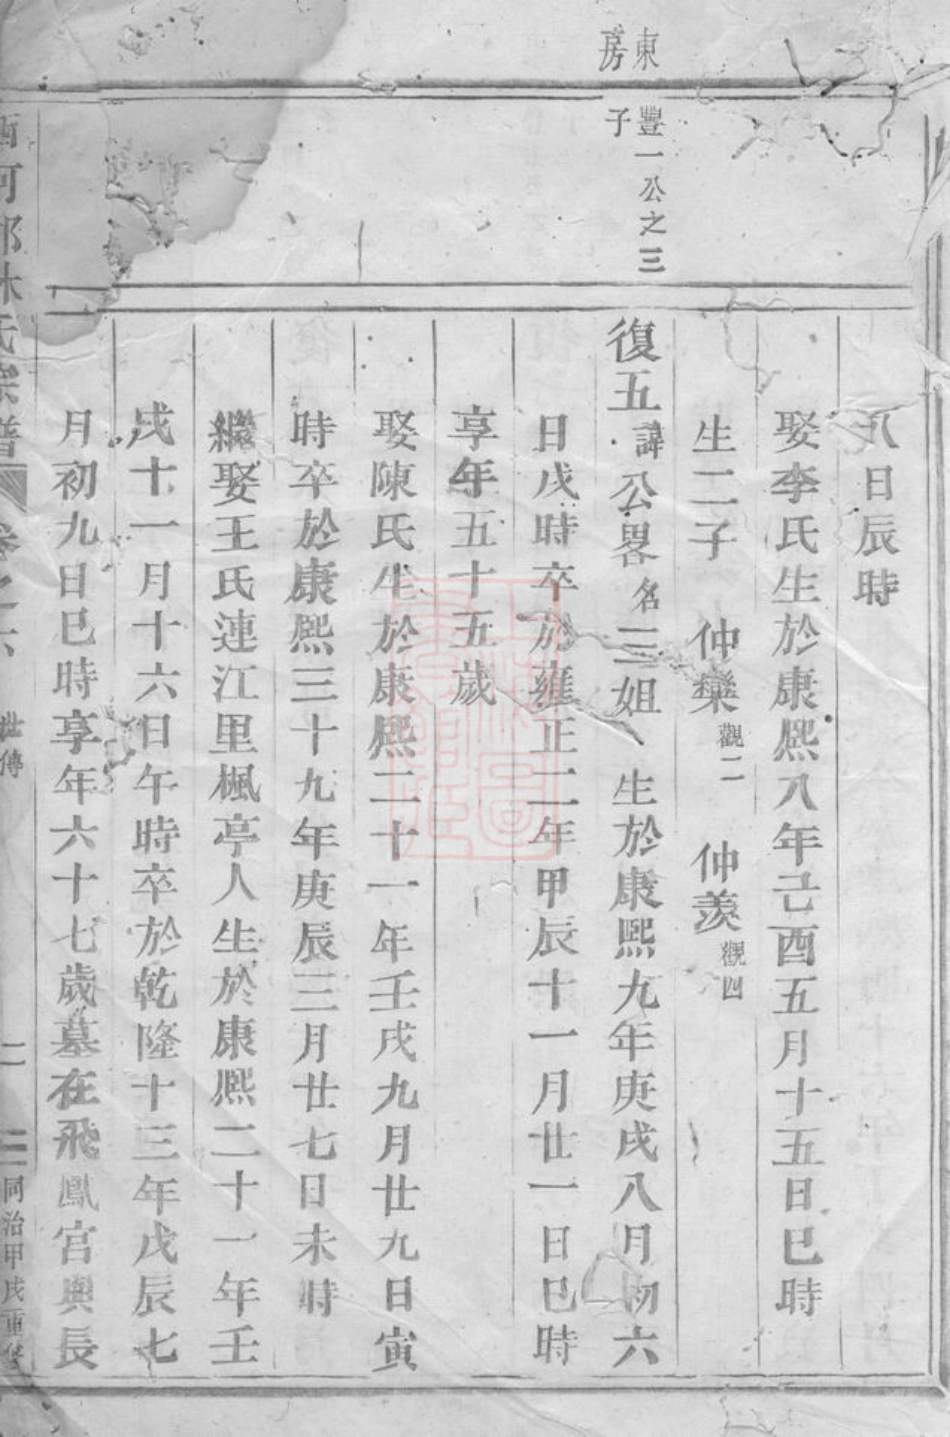 東
房
豐一公之三
子
八日辰時
娶李氏生於康熙八年己酉五月十五日巳時
生二子 仲欒觀二 仲羨觀四
復五諱公畧名三姐 生於康熙九年庚戌八月初六
日戌時卒於雍正二年甲辰十一月廿一日巳時
享年五十五歲
娶陳氏生於康熙二十一年壬戌九月廿九日寅
時卒於康熙三十九年庚辰三月廿七日未時
繼娶王氏連江里楓亭人生於康熙二十一年壬
戌十一月十六日午時卒於乾隆十三年戊辰七
月初九日巳時享年六十七歲墓在飛鳳宮與長
西河郡林氏宗譜 卷之六 世傳 二 同治甲戌重修